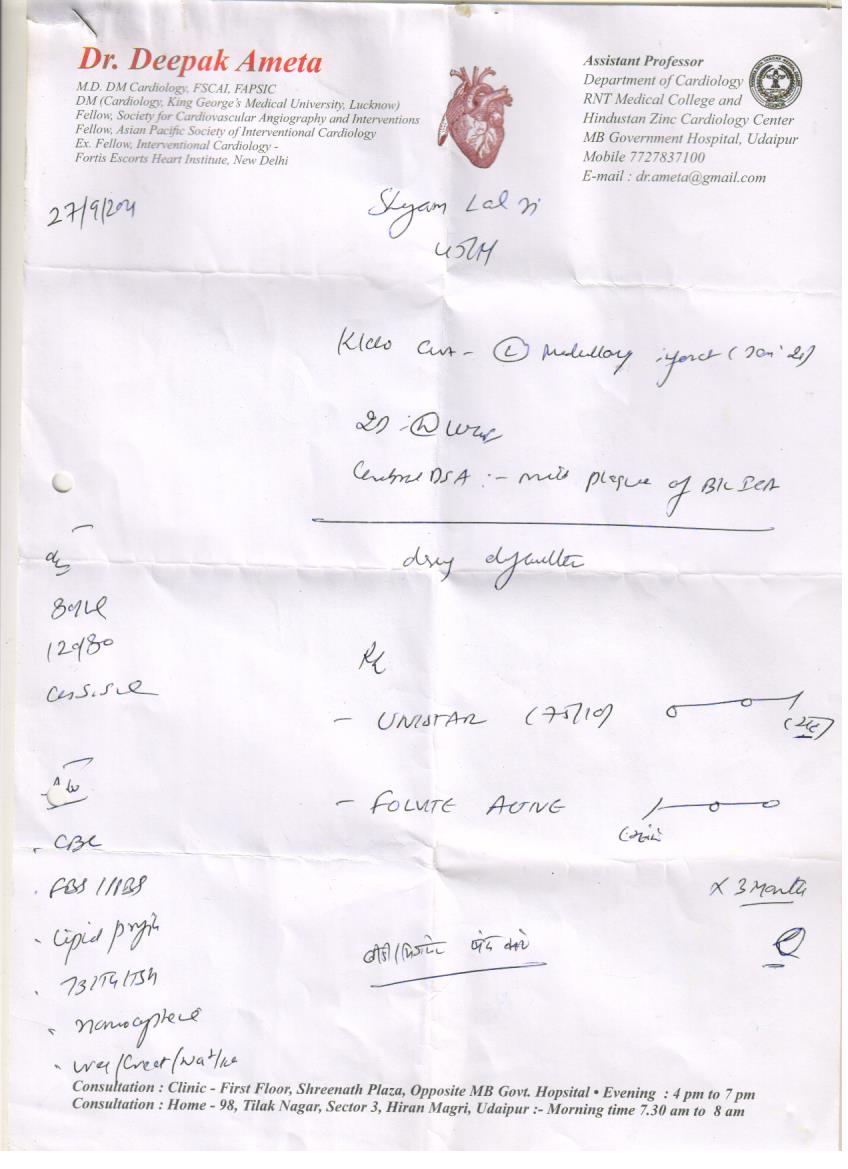 Dr. Deepak Ameta
M.D. DM Cardiology, FSCAI, FAPSIC
DM (Cardiology, King George's Medical University, Lucknow)
Fellow, Society for Cardiovascular Angiography and Interventions
Fellow, Asian Pacific Society of Interventional Cardiology
Ex. Fellow, Interventional Cardiology -
Fortis Escorts Heart Institute, New Delhi
Assistant Professor
Department of Cardiology
RNT Medical College and
Hindustan Zinc Cardiology Center
MB Government Hospital, Udaipur
Mobile 7727837100
E-mail : dr.ameta@gmail.com
Shyam Lal Ji
K/c/o CVA - (L) Medullary infarct
2D :- (N)
Cerebral DSA :- mild plaque of B/L ICA
drug defaulter
120/80
Rx
- UNISTAR (75/10)
- FOLVITE ACTIVE
X 3 Month
बंद करें
CBC
FBS / PPBS
Lipid profile
T3/T4/TSH
Homocysteine
Urea/Creat/Na+/K+
Consultation : Clinic - First Floor, Shreenath Plaza, Opposite MB Govt. Hopsital • Evening : 4 pm to 7 pm
Consultation : Home - 98, Tilak Nagar, Sector 3, Hiran Magri, Udaipur :- Morning time 7.30 am to 8 am